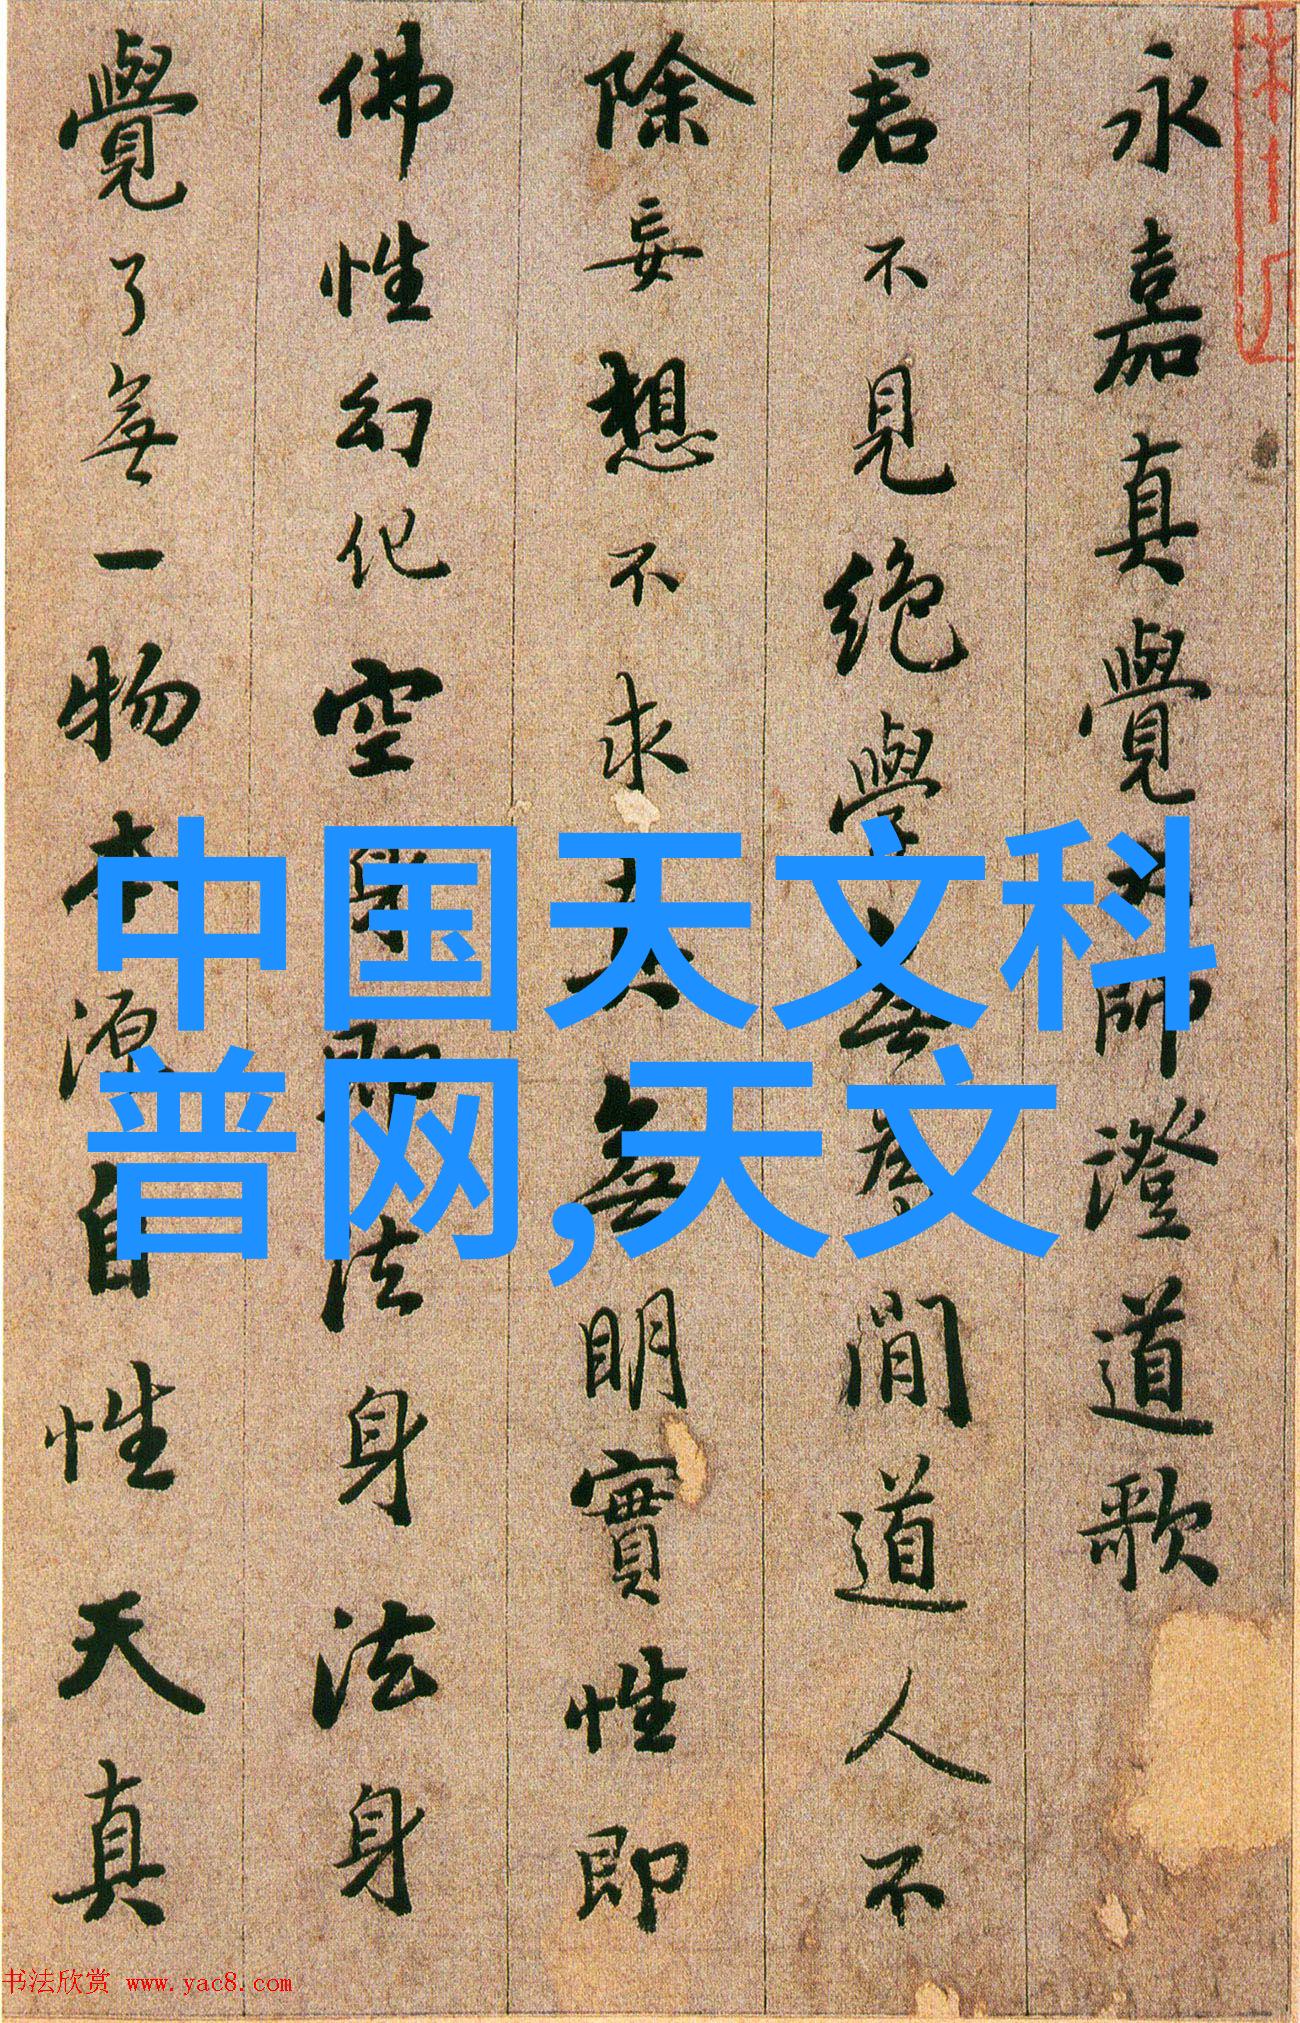 永嘉真覺大師澄道歌
君不見絕學無為閒道人不
除妄想不求真無明實性即
佛性幻化空身即法身法身
覺了無一物本源自性天真
中国天文科
普网,天文
书法欣赏 www.yac8.com